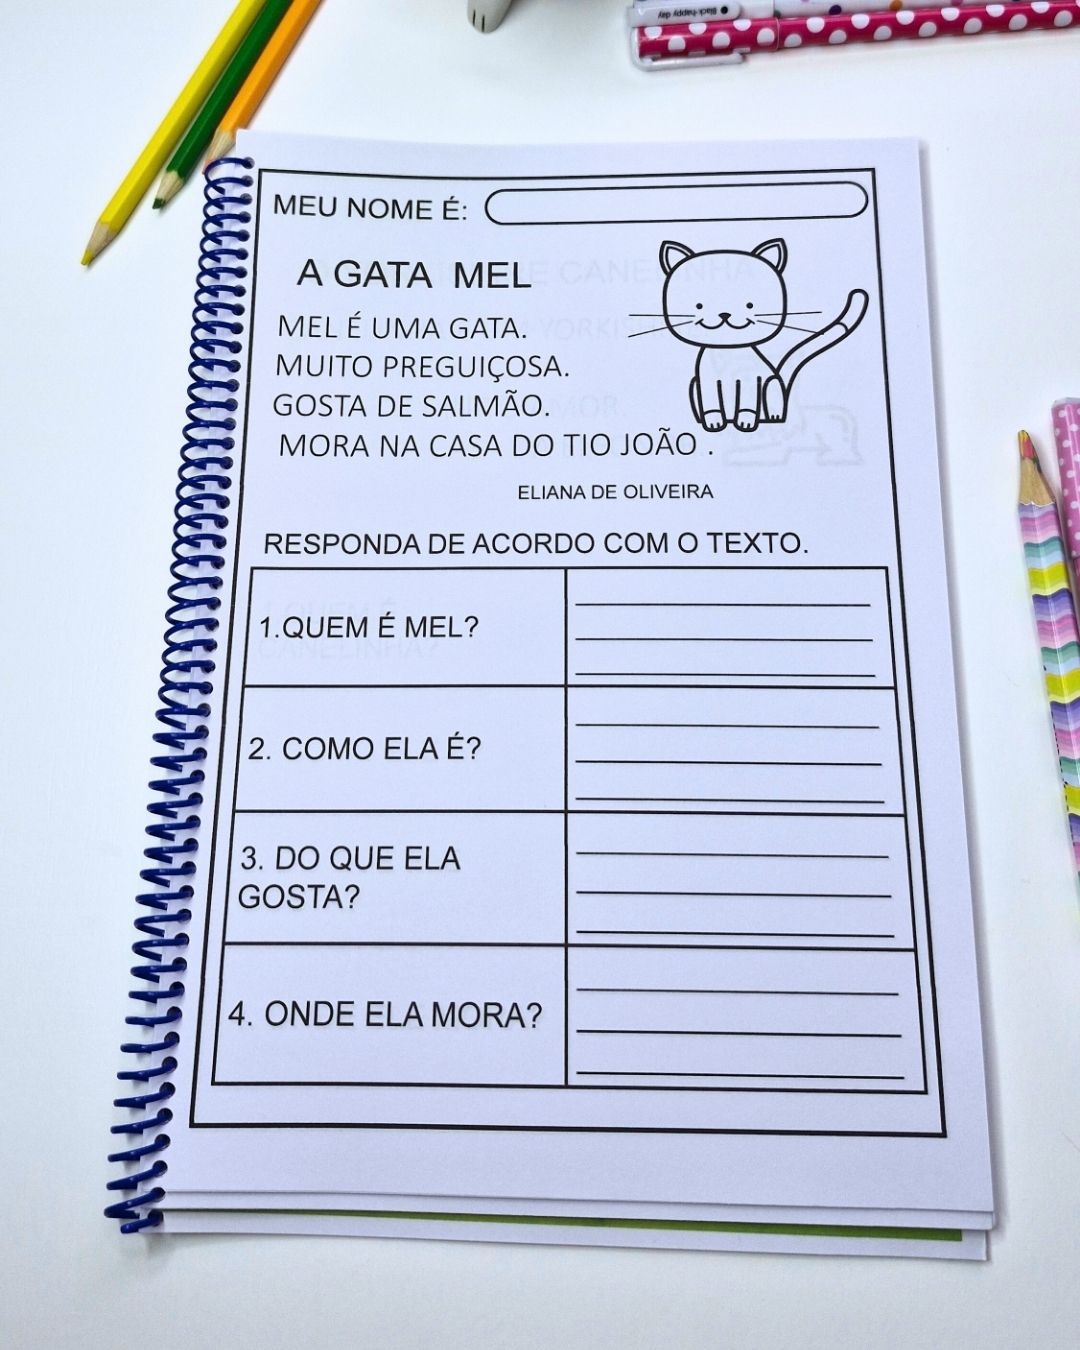 Black happy day
MEU NOME É:
A GATA MEL
MEL É UMA GATA.
MUITO PREGUIÇOSA.
GOSTA DE SALMÃO.
MORA NA CASA DO TIO JOÃO .
ELIANA DE OLIVEIRA
RESPONDA DE ACORDO COM O TEXTO.
1.QUEM É MEL?
2. COMO ELA É?
3. DO QUE ELA
GOSTA?
4. ONDE ELA MORA?